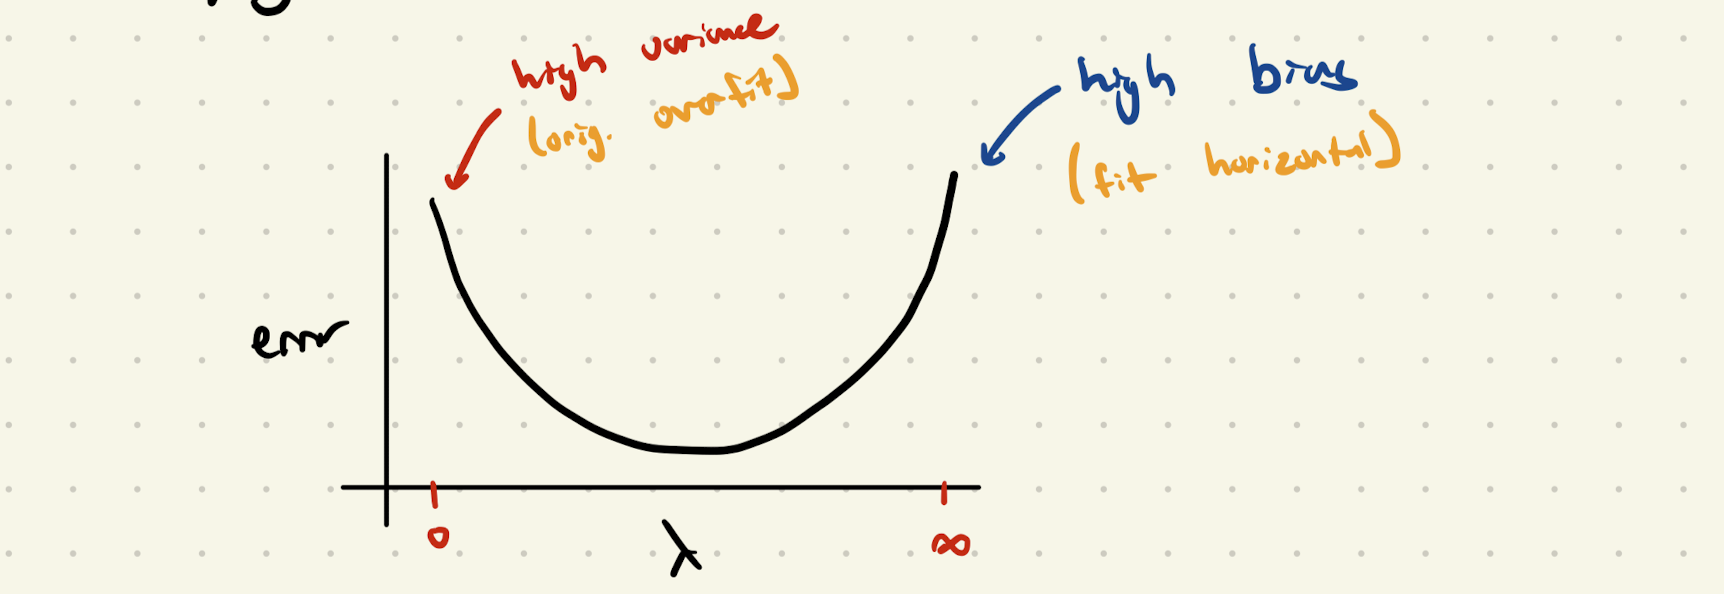 high variance
(orig. overfit)
high bias
(fit horizontal)
error
0
λ
∞